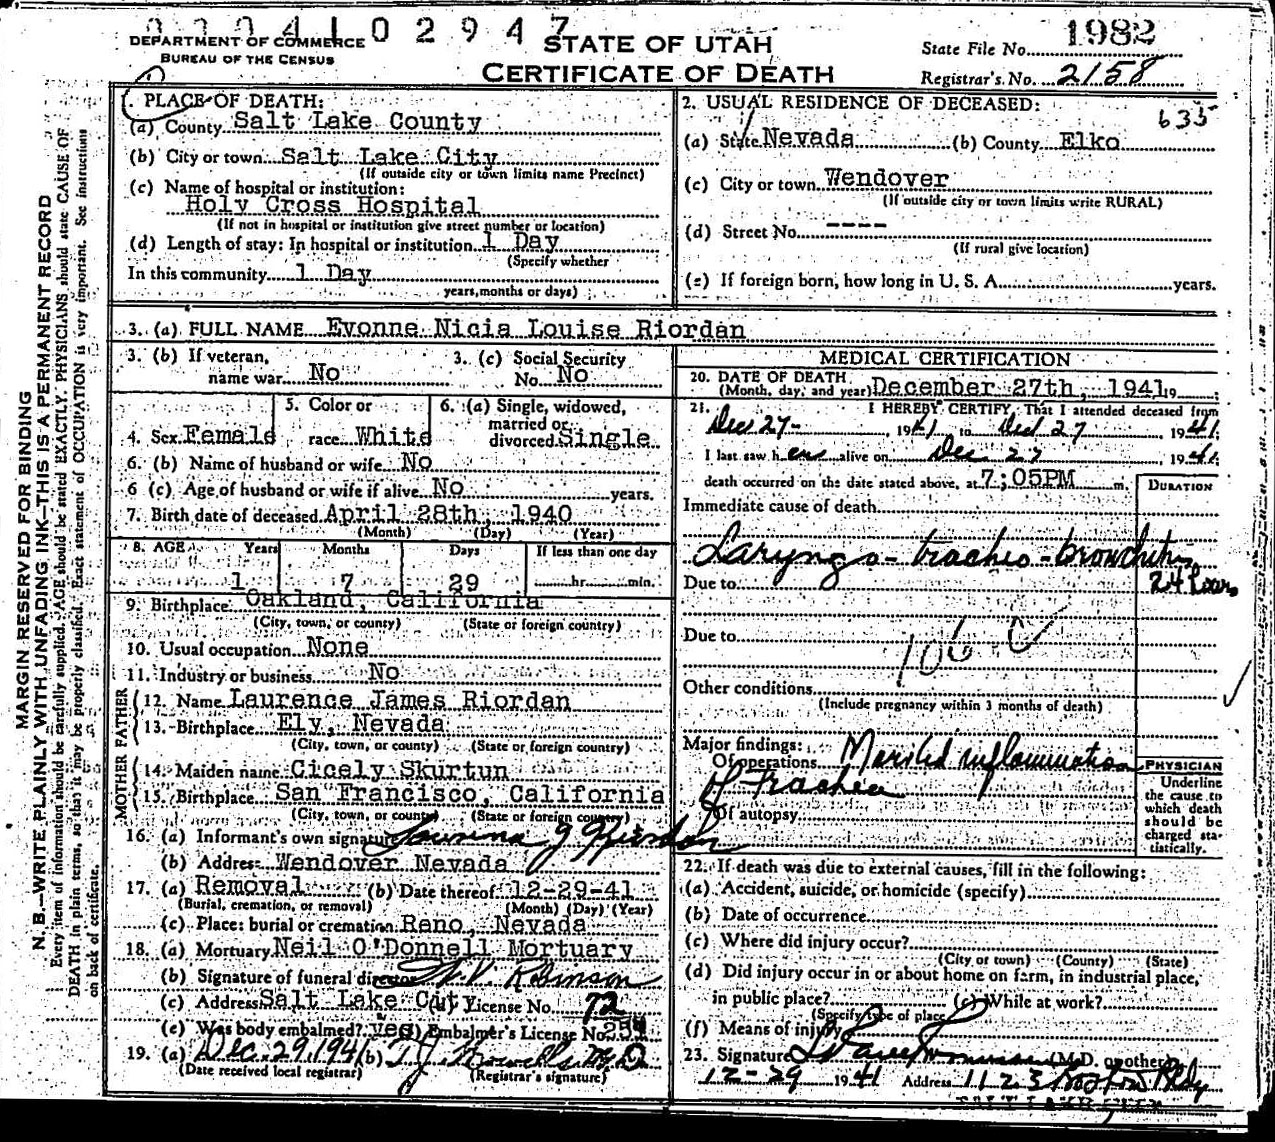 0 3 0 4 1 0 2 9 4 7
DEPARTMENT OF COMMERCE
BUREAU OF THE CENSUS
STATE OF UTAH
CERTIFICATE OF DEATH
State File No. 1982
Registrar's No. 2158
MARGIN RESERVED FOR BINDING
N. B.—WRITE PLAINLY WITH UNFADING INK—THIS IS A PERMANENT RECORD
Every item of information should be carefully supplied. AGE should be stated EXACTLY. PHYSICIANS should state CAUSE OF
DEATH in plain terms, so that it may be properly classified. Exact statement of OCCUPATION is very important. See instructions
on back of certificate.
1. PLACE OF DEATH:
(a) County Salt Lake County
(b) City or town Salt Lake City
(If outside city or town limits name Precinct)
(c) Name of hospital or institution:
Holy Cross Hospital
(If not in hospital or institution give street number or location)
(d) Length of stay: In hospital or institution 1 Day
(Specify whether
In this community 1 Day
years, months or days)
2. USUAL RESIDENCE OF DECEASED:
635
(a) State Nevada (b) County Elko
(c) City or town Wendover
(If outside city or town limits write RURAL)
(d) Street No. ----
(If rural give location)
(e) If foreign born, how long in U. S. A. years.
3. (a) FULL NAME Evonne Nicia Louise Riordan
3. (b) If veteran, 3. (c) Social Security
name war No No. No
4. Sex Female 5. Color or race White 6. (a) Single, widowed, married or divorced Single
6. (b) Name of husband or wife No
6 (c) Age of husband or wife if alive No years.
7. Birth date of deceased April 28th, 1940
(Month) (Day) (Year)
8. AGE Years Months Days If less than one day
1 7 29 hr. min.
9. Birthplace Oakland, California
(City, town, or county) (State or foreign country)
10. Usual occupation None
11. Industry or business No
FATHER
12. Name Laurence James Riordan
13. Birthplace Ely, Nevada
(City, town, or county) (State or foreign country)
MOTHER
14. Maiden name Cicely Skurtun
15. Birthplace San Francisco, California
(City, town, or county) (State or foreign country)
16. (a) Informant's own signature Riordan
(b) Address Wendover Nevada
17. (a) Removal (b) Date thereof 12-29-41
(Burial, cremation, or removal) (Month) (Day) (Year)
(c) Place: burial or cremation Reno, Nevada
18. (a) Mortuary Neil O'Donnell Mortuary
(b) Signature of funeral director Robinson
(c) Address Salt Lake City (d) License No. 72
(e) Was body embalmed? yes (f) Embalmer's License No. 254
19. (a) Dec. 29 1941 (b) T. J. Howells M.D
(Date received local registrar) (Registrar's signature)
MEDICAL CERTIFICATION
20. DATE OF DEATH
(Month, day, and year) December 27th, 1941 19
21. I HEREBY CERTIFY, That I attended deceased from
Dec 27- , 1941 to Dec 27 , 1941;
I last saw her alive on Dec. 27 1941;
death occurred on the date stated above, at 7:05PM m.
DURATION
Immediate cause of death
Laryngo-tracheo-bronchitis
Due to 24 hours
Due to
106 C
Other conditions
(Include pregnancy within 3 months of death)
Major findings:
Of operations Marked inflammation
of trachea
Of autopsy
PHYSICIAN
Underline
the cause to
which death
should be
charged sta-
tistically.
22. If death was due to external causes, fill in the following:
(a) Accident, suicide, or homicide (specify)
(b) Date of occurrence
(c) Where did injury occur?
(City or town) (County) (State)
(d) Did injury occur in or about home on farm, in industrial place,
in public place? (e) While at work?
(Specify type of place)
(f) Means of injury
23. Signature (M.D. or other)
12-29 1941 Address 1123 Boston Bldg
SALT LAKE CITY